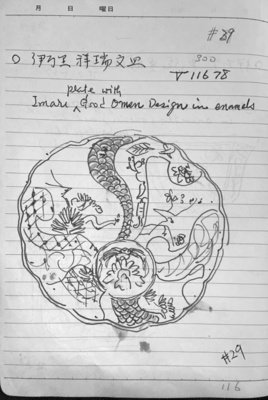 月 日 曜日
#29
○ 伊万里 祥瑞文皿
300
V 11678
plate with
Imari ^ Good Omen Design in enamels
#29
116